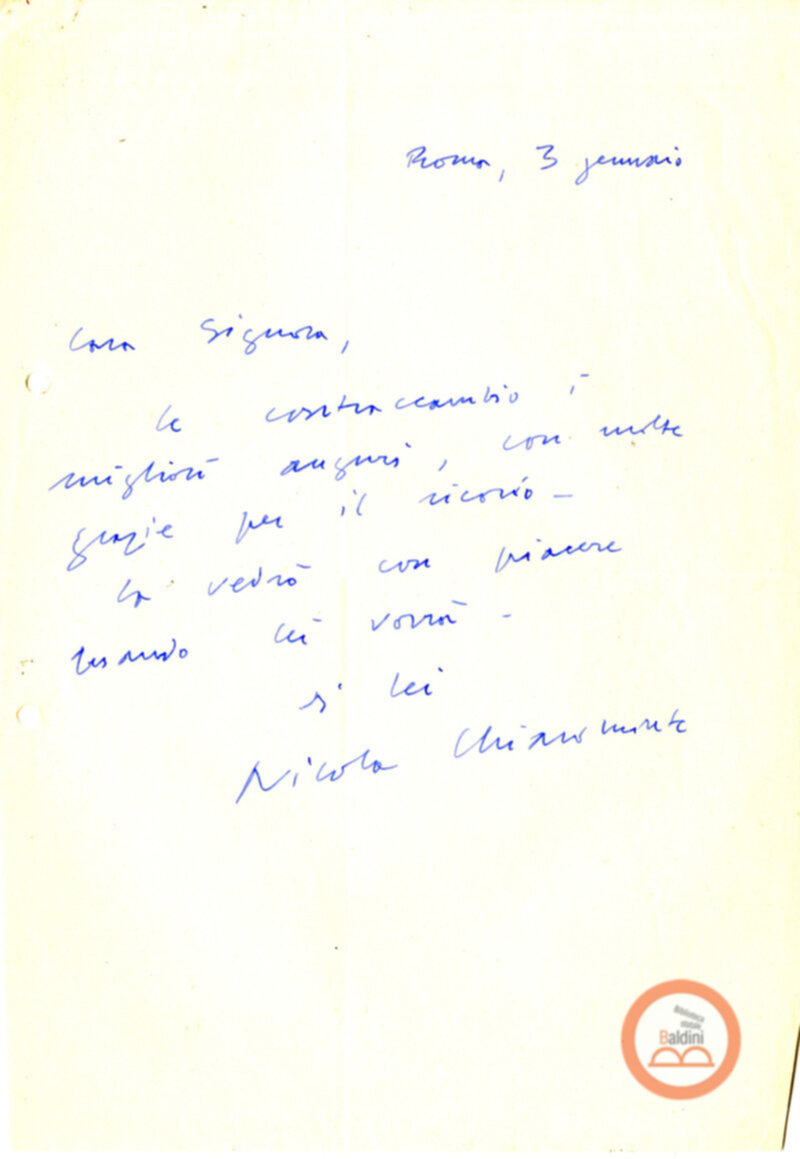 Roma, 3 gennaio
Cara Signora,
le contraccambio i
migliori auguri, con molte
grazie per il ricordo –
La vedrò con piacere
quando lei vorrà –
di lei
Nicola Chiaromonte
Biblioteca
statale
Baldini